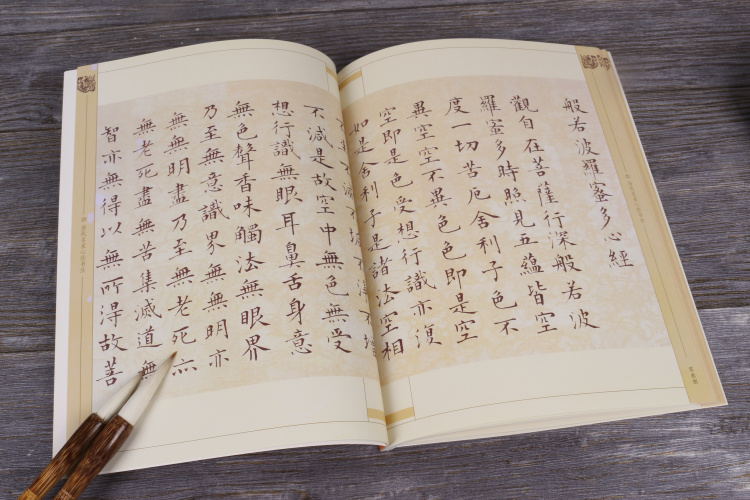 般若波羅蜜多心經
觀自在菩薩行深般若波
羅蜜多時照見五蘊皆空
度一切苦厄舍利子色不
異空空不異色色即是空
空即是色受想行識亦復
如是舍利子是諸法空相
不減是故空中無色無受
想行識無眼耳鼻舌身意
無色聲香味觸法無眼界
乃至無意識界無無明亦
無無明盡乃至無老死亦
無老死盡無苦集滅道無
智亦無得以無所得故菩